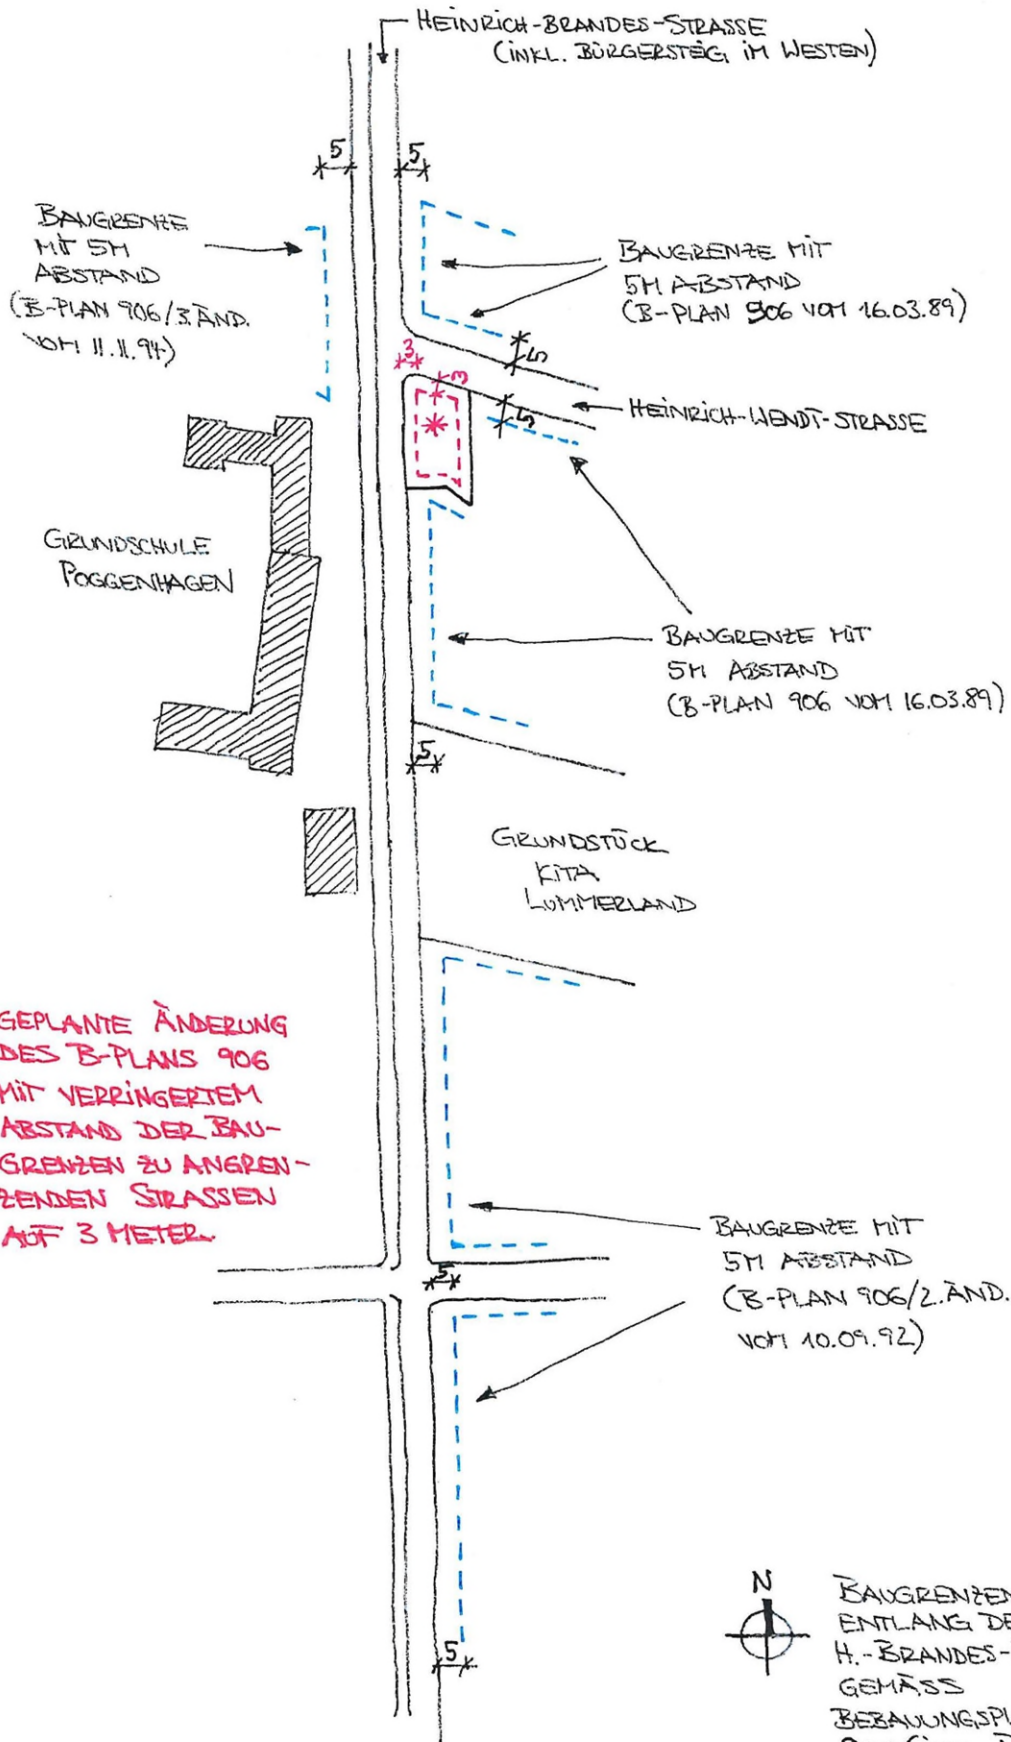 HEINRICH-BRANDES-STRASSE
(INKL. BÜRGERSTEIG IM WESTEN)
5
5
BAUGRENZE
MIT 5M
ABSTAND
(B-PLAN 906/3.ÄND.
VOM 11.11.94)
BAUGRENZE MIT
5M ABSTAND
(B-PLAN 906 VOM 16.03.89)
5
3
3
5
HEINRICH-WENDT-STRASSE
GRUNDSCHULE
POGGENHAGEN
BAUGRENZE MIT
5M ABSTAND
(B-PLAN 906 VOM 16.03.89)
5
GRUNDSTÜCK
KITA
LUMMERLAND
GEPLANTE ÄNDERUNG
DES B-PLANS 906
MIT VERRINGERTEM
ABSTAND DER BAU-
GRENZEN ZU ANGREN-
ZENDEN STRASSEN
AUF 3 METER.
BAUGRENZE MIT
5M ABSTAND
(B-PLAN 906/2.ÄND.
VOM 10.09.92)
5
5
N
BAUGRENZEN
ENTLANG DE
H.-BRANDES-
GEMÄSS
BEBAUUNGSPL